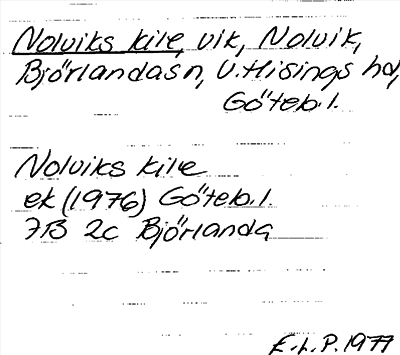 Nolviks kile, vik, Nolvik,
Björlanda sn, V. Hisings hd,
Göteb. l.
Nolviks kile
ek (1976) Göteb. l.
7B 2c Björlanda
E.L.P. 1977